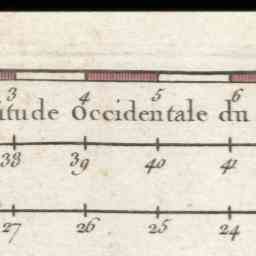 3 4 5 6
itude Occidentale du
38 39 40 41
27 26 25 24